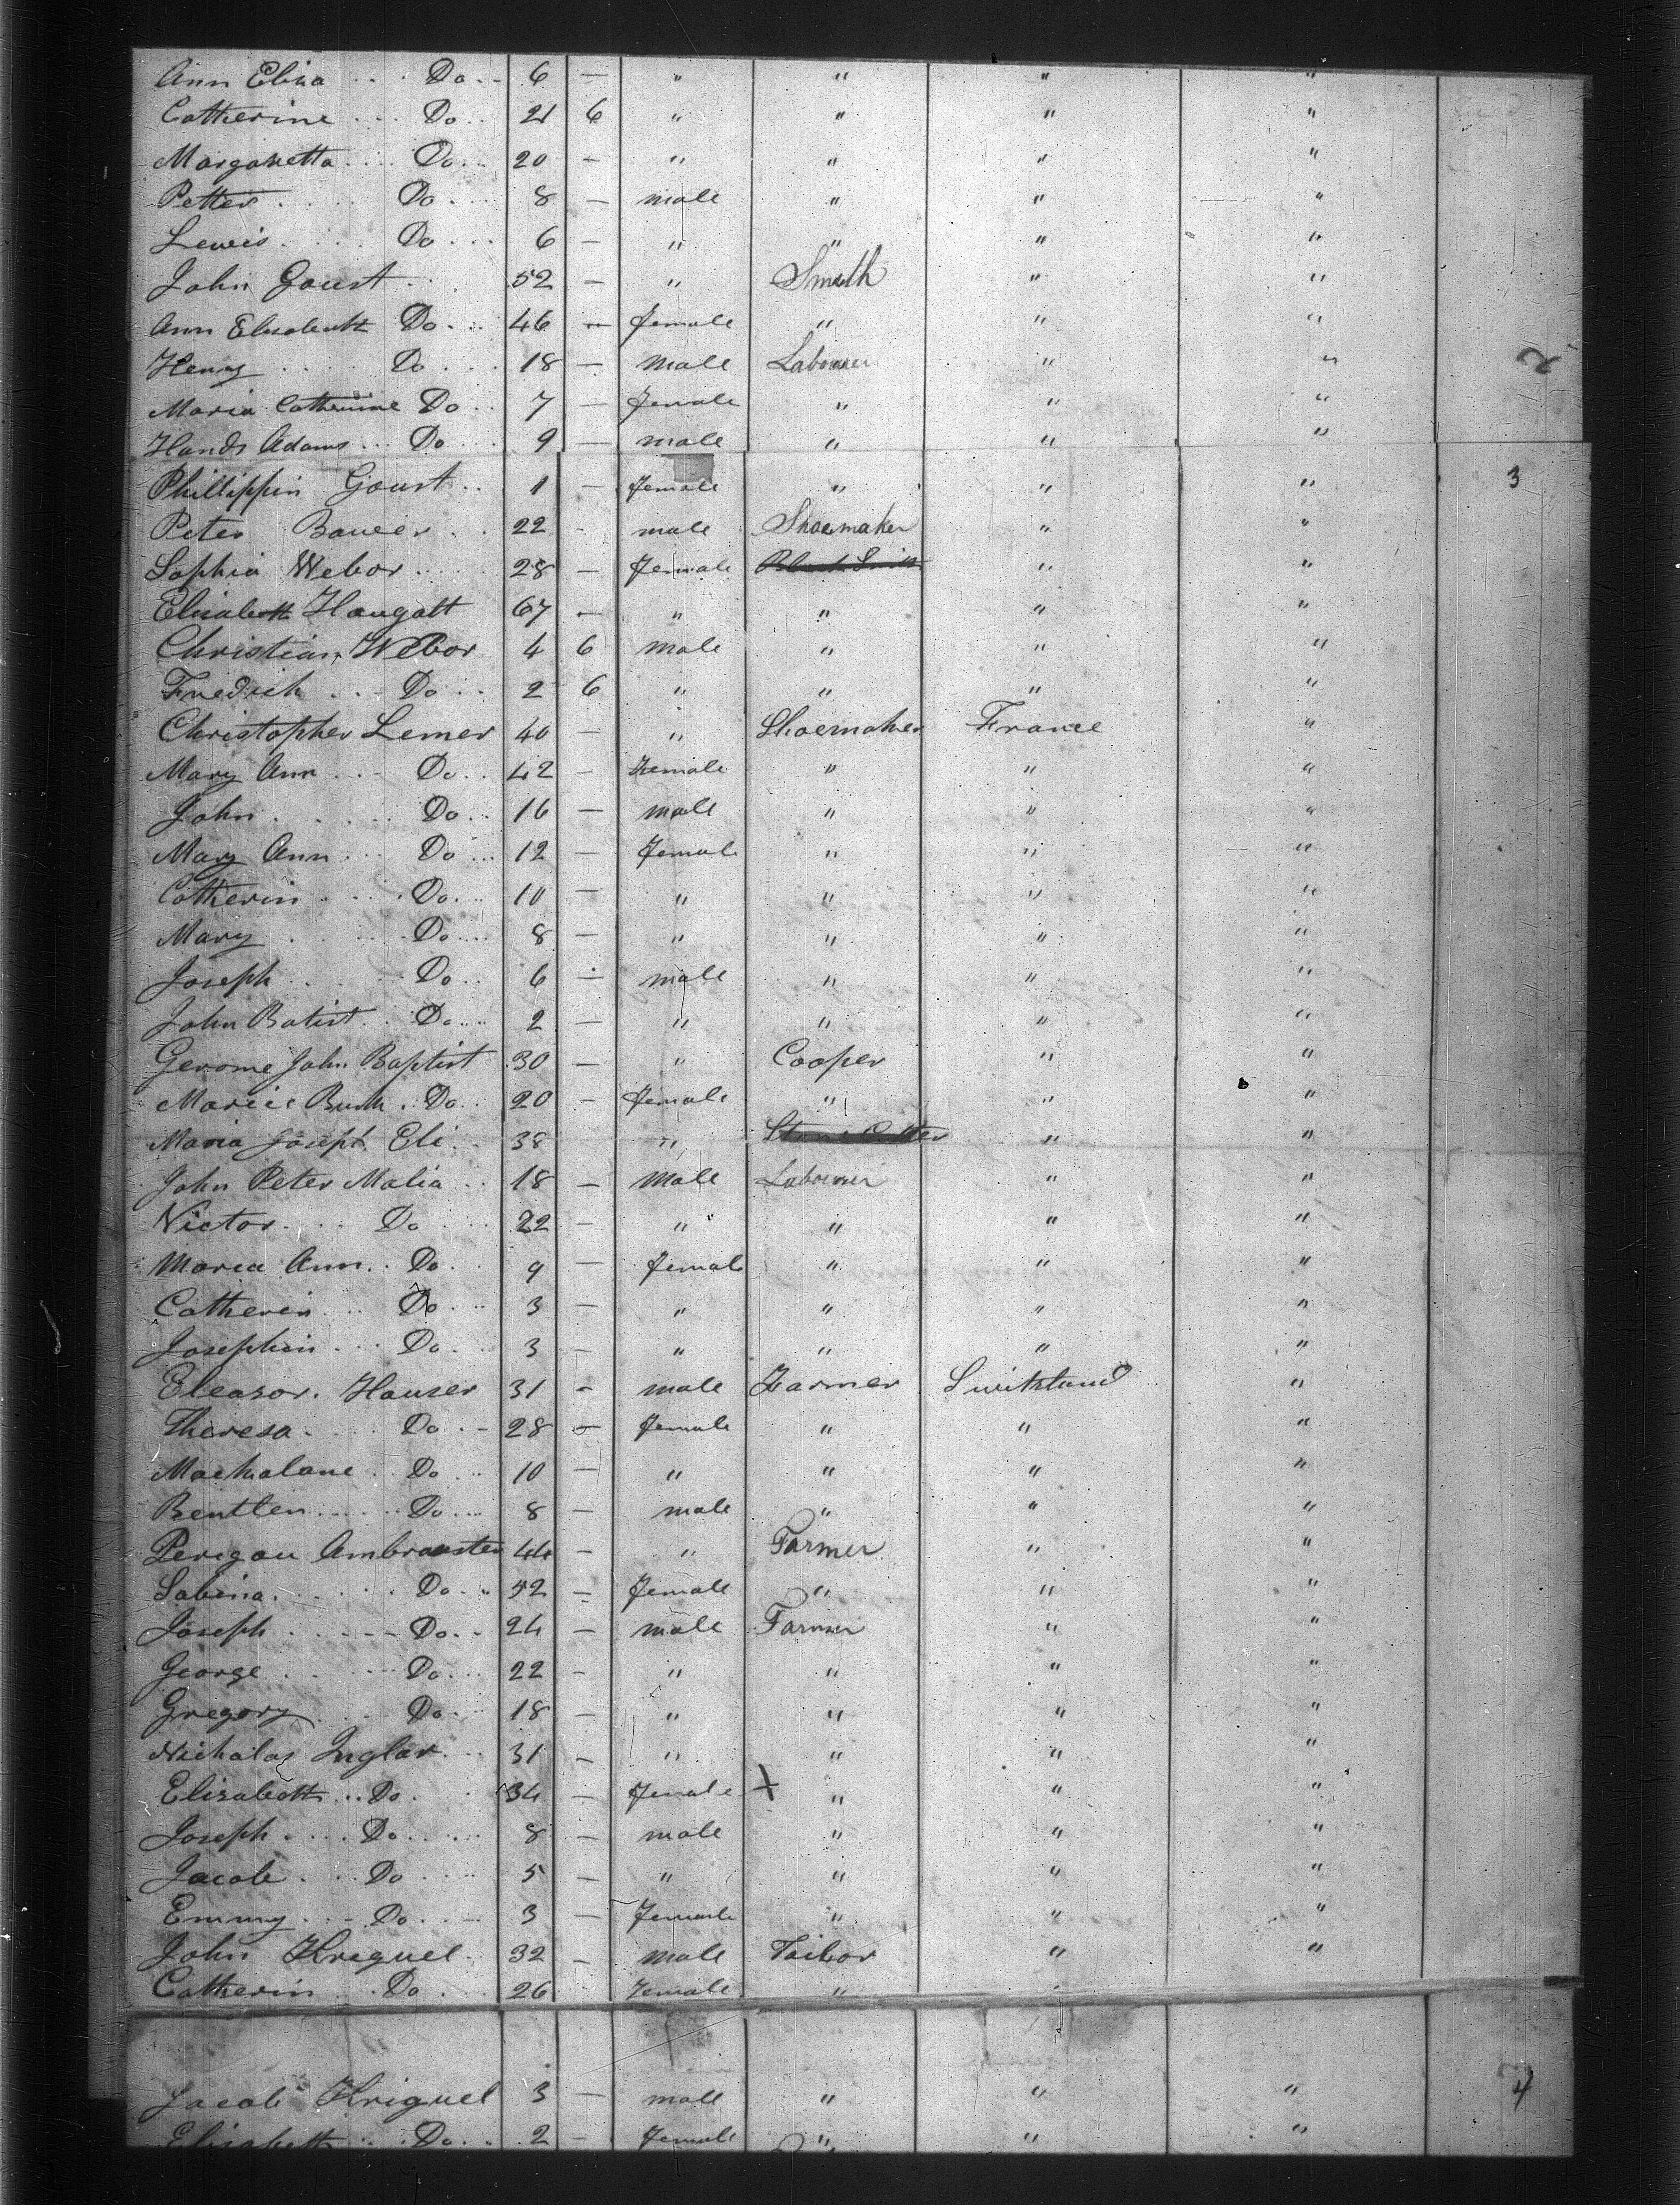 Ann Eliza . . . Do . . 6 — " " " "
Catherine . . . Do . . 21 6 " " " "
Margaretta . . . Do . . 20 — " " " "
Petter . . . . Do . . . 8 — male " " "
Lewis . . . . Do . . . 6 — " " " "
John Goust . . . 52 — " Smith " "
Ann Elisabeth Do . . . 46 — female " " "
Henry . . . . Do . . . 18 — male Labourer " " 2
Maria Catherine Do . . 7 — female " " "
Hands Adams . . . Do . . . 9 — male " " "
Phillippin Goust . . 1 — female " " " 3
Peter Bauer . . 22 - male Shoemaker " "
Sophia Webor . . . . 28 — female Black Smith " "
Elisabeth Haugatt 67 — " " " "
Christian Webor 4 6 male " " "
Friedrich . . - Do . . . 2 6 " " " "
Christopher Lemer 40 — " Shoemaker France "
Mary Ann . . . Do . . 42 — Female " " "
John . . . . . . Do . . 16 — male " " "
Mary Ann . . . Do . . . 12 — Female " " "
Catherin . . . . Do . . . 10 — " " " "
Mary . . . . . Do . . . 8 — " " " "
Joseph . . . . . Do . . 6 — male " " "
John Batist . . Do . . . 2 — " " " "
Gerome John Baptist 30 — " Cooper " "
Marie Burk . Do . . 20 — female " " "
Maria Joseph Eli . . 38 " Stone Cutter " "
John Peter Malia . . 18 — Male Labourer " "
Victor . . . . Do . . . 22 — " " " "
Maria Ann . . Do . . 9 — female " " "
Catherin . . . Do . . . 3 — " " " "
Josephin . . . Do . . 3 — " " " "
Eleasor . Hauser 31 - male Farmer Switzland "
Theresa . . . . Do . . - 28 — female " " "
Machalane . . Do . . . 10 — " " " "
Bentlen . . . . . Do . . . 8 — male " " "
Perigau Ambrauster 44 — " Farmer " "
Sabina . . . . . . Do . . 52 — female " " "
Joseph . . . . - - Do . . 24 — male Farmer " "
George . . . . . Do . . . 22 — " " " "
Gregory . . . Do . . 18 — " " " "
Nicholas Inglar . . . 31 — " " " "
Elisabeth . . Do . . 34 — female X " " "
Joseph . . . . Do . . . . . 8 — male " " "
Jacob . . . Do . . . . 5 — " " " "
Emmy . . . Do . . . . 3 — Female " " "
John Kreguel . . 32 — male Tailor " "
Catherin . . Do . . . 26 Female "
Jacob Kriguel 3 — male " " " 4
Elisabeth . . . Do . . . 2 — female " " "